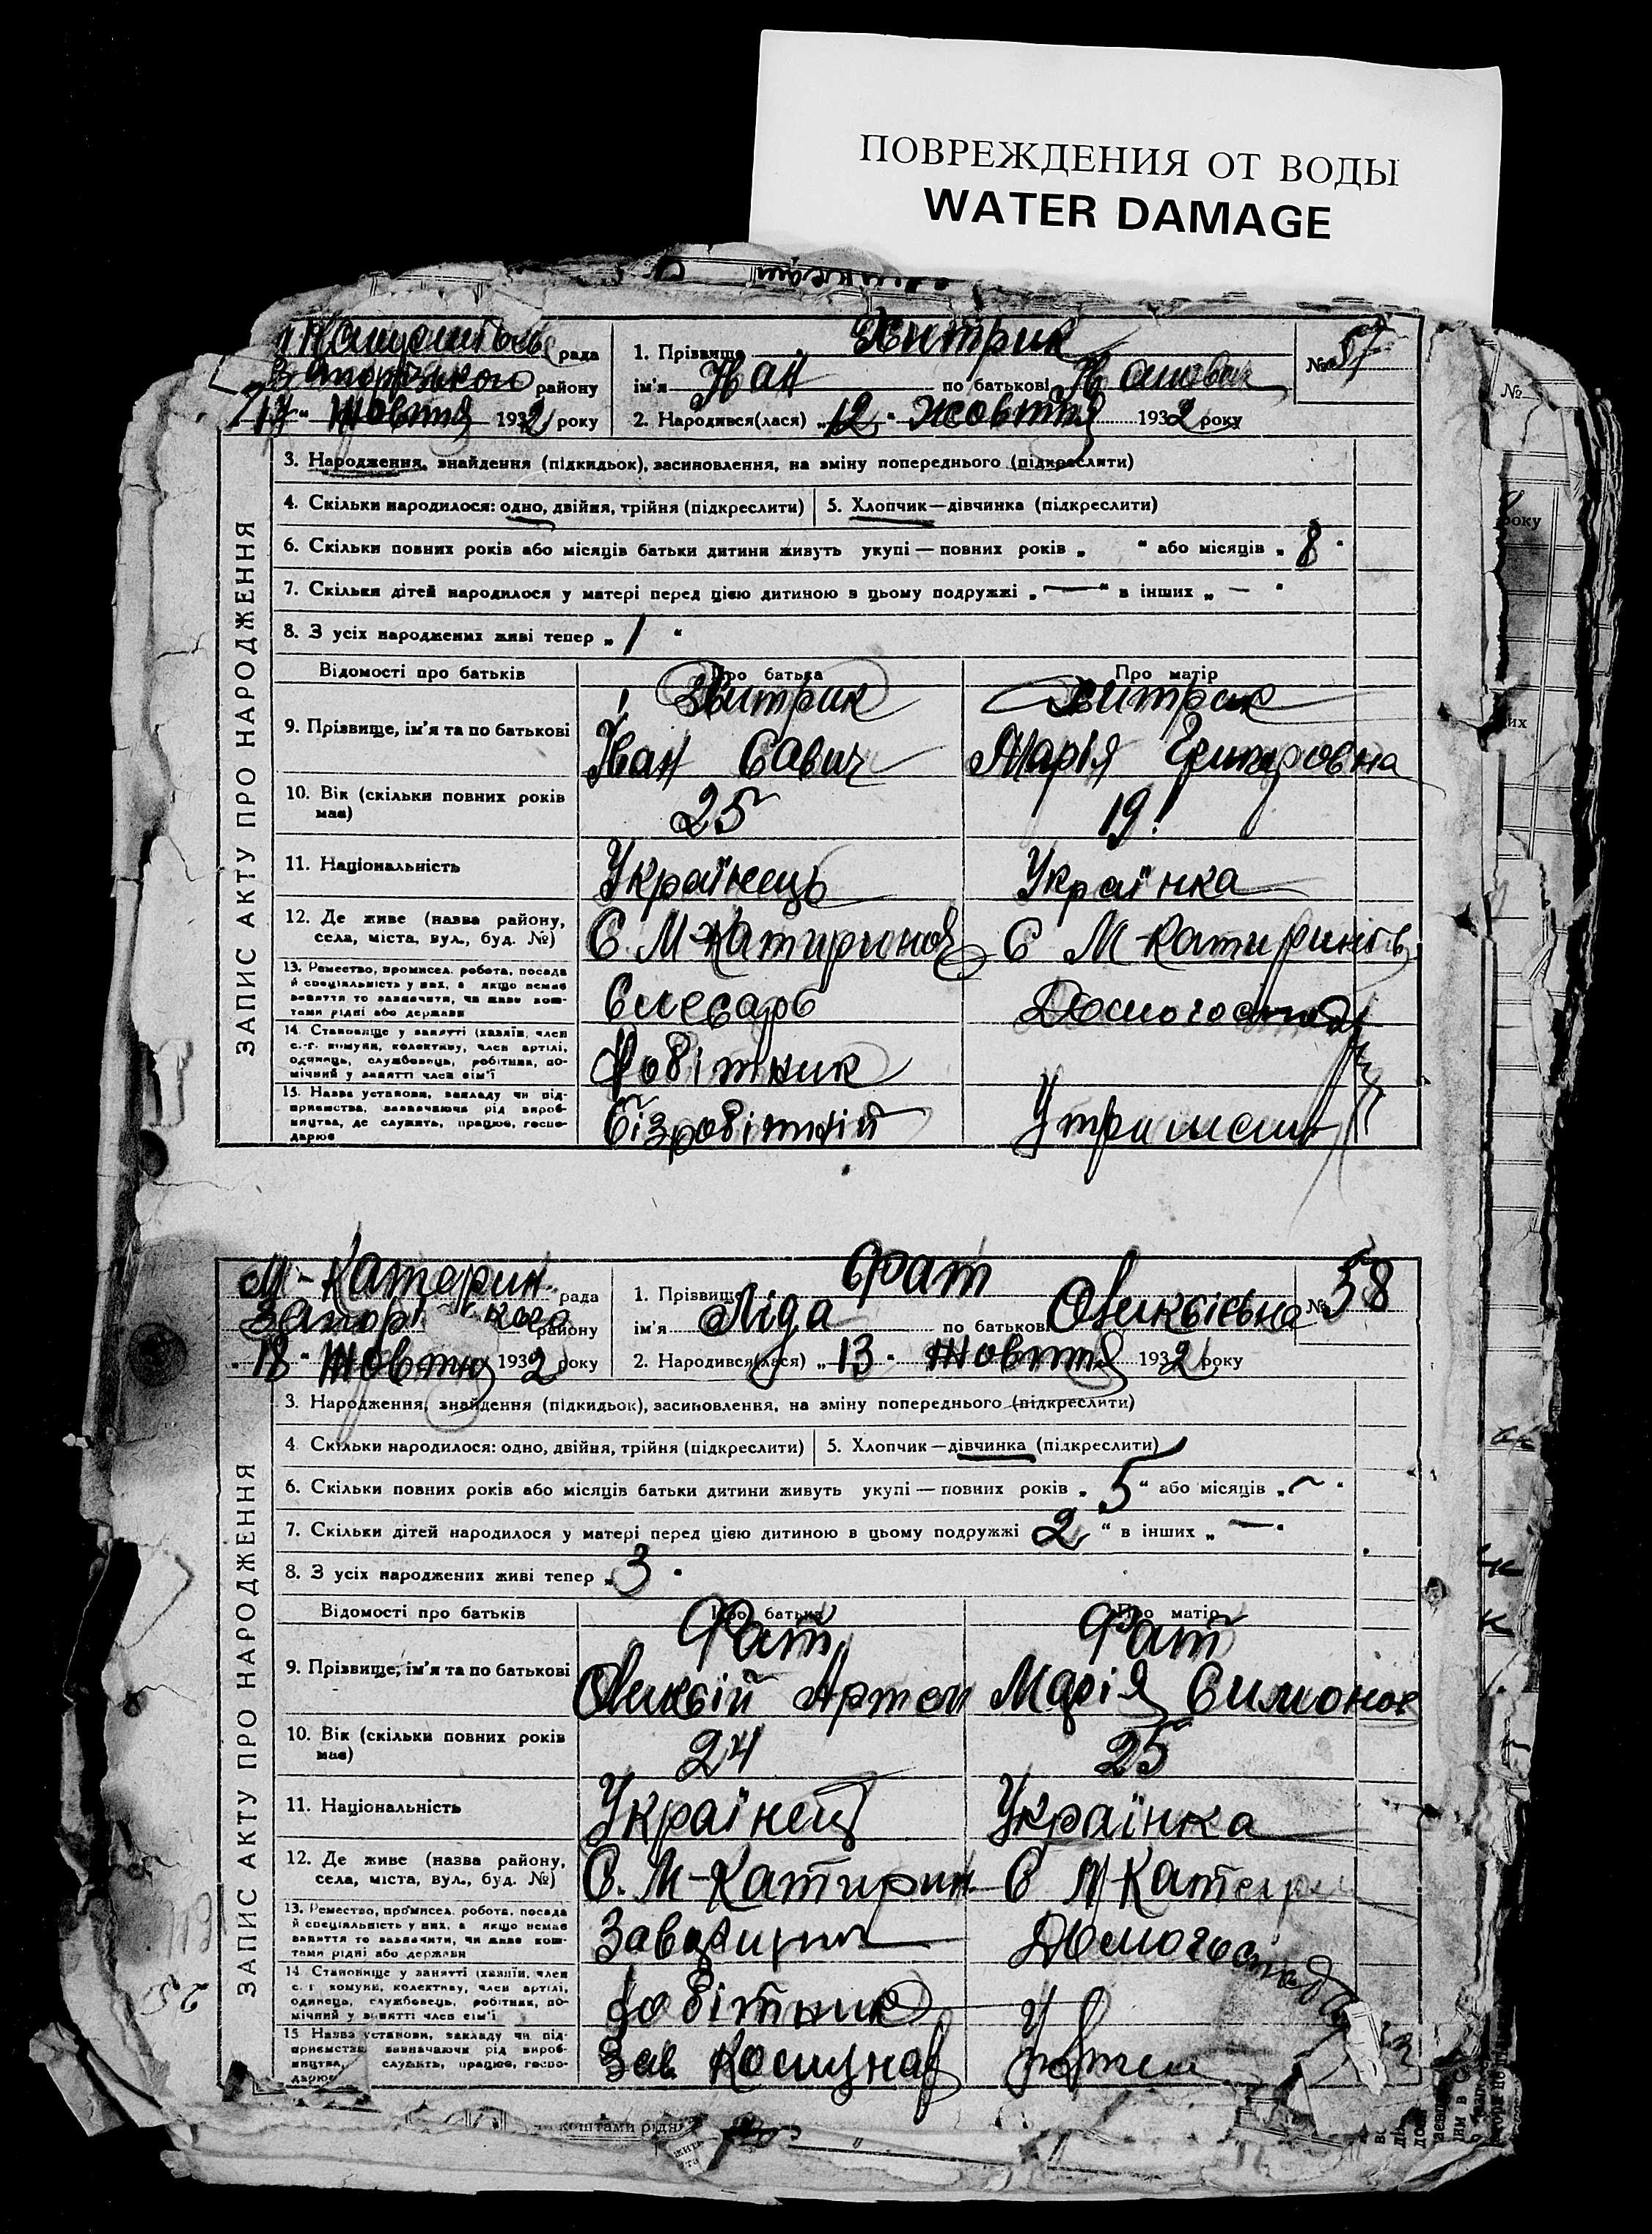 ПОВРЕЖДЕНИЯ ОТ ВОДЫ
WATER DAMAGE
рада
району
"17" Жовтня 1932 року
1. Прізвище Хитрик
ім'я Іван по батькові Іванович
№ 57
2. Народився(лася) „12" Жовтня 1932 року
ЗАПИС АКТУ ПРО НАРОДЖЕННЯ
3. Народження, знайдення (підкидьок), засиновлення, на зміну попереднього (підкреслити)
4. Скільки народилося: одно, двійня, трійня (підкреслити)
5. Хлопчик—дівчинка (підкреслити)
6. Скільки повних років або місяців батьки дитини живуть укупі — повних років „ " або місяців „8"
7. Скільки дітей народилося у матері перед цією дитиною в цьому подружжі „—" в інших „—"
8. З усіх народжених живі тепер „1"
Відомості про батьків
Про батька
Про матір
9. Прізвище, ім'я та по батькові
Хитрик
Іван Савич
Хитрик
Марія
10. Вік (скільки повних років має)
25
19!
11. Національність
Українець
Українка
12. Де живе (назва району, села, міста, вул., буд. №)
С. М-Катиринов
С М-Катиринів
13. Ремество, промисел, робота, посада
й спеціальність у них, а якщо немає
заняття то зазначити, чи живе кош-
тами рідні або держави
Слесарь
14. Становище у занятті (хазяїн, член
с.-г. комуни, колективу, член артілі,
одинець, службовець, робітник, по-
мічний у занятті член сім'ї
Робітник
15. Назва установи, закладу чи під-
приємства, зазначаючи рід вироб-
ництва, де служить, працює, госпо-
дарює
Бізробітній
М-Катерин рада
району
"18" Жовтня 1932 року
1. Прізвище Фат
ім'я Ліда по батькові Олексієвна
№ 58
2. Народився(лася) „13" Жовтня 1932 року
ЗАПИС АКТУ ПРО НАРОДЖЕННЯ
3. Народження, знайдення (підкидьок), засиновлення, на зміну попереднього (підкреслити)
4. Скільки народилося: одно, двійня, трійня (підкреслити)
5. Хлопчик—дівчинка (підкреслити)
6. Скільки повних років або місяців батьки дитини живуть укупі — повних років „5" або місяців „—"
7. Скільки дітей народилося у матері перед цією дитиною в цьому подружжі 2" в інших „—"
8. З усіх народжених живі тепер „3"
Відомості про батьків
Про батька
Про матір
9. Прізвище, ім'я та по батькові
Фат
Олексій Артем
Фат
Марія Симонов
10. Вік (скільки повних років має)
24
25
11. Національність
Українец
Українка
12. Де живе (назва району, села, міста, вул., буд. №)
С. М-Катирин
С М-Катери
13. Ремество, промисел, робота, посада
й спеціальність у них, а якщо немає
заняття то зазначити, чи живе кош-
тами рідні або держави
Домогоспод
14. Становище у занятті (хазяїн, член
с. г комуни, колективу, член артілі,
одинець, службовець, робітник, по-
мічний у занятті член сім'ї
Робітник
15 Назва установи, закладу чи під-
приємства зазначаючи рід вироб-
ництва, служить, працює, госпо-
дарює
Зав. Комунар
коштами рідні